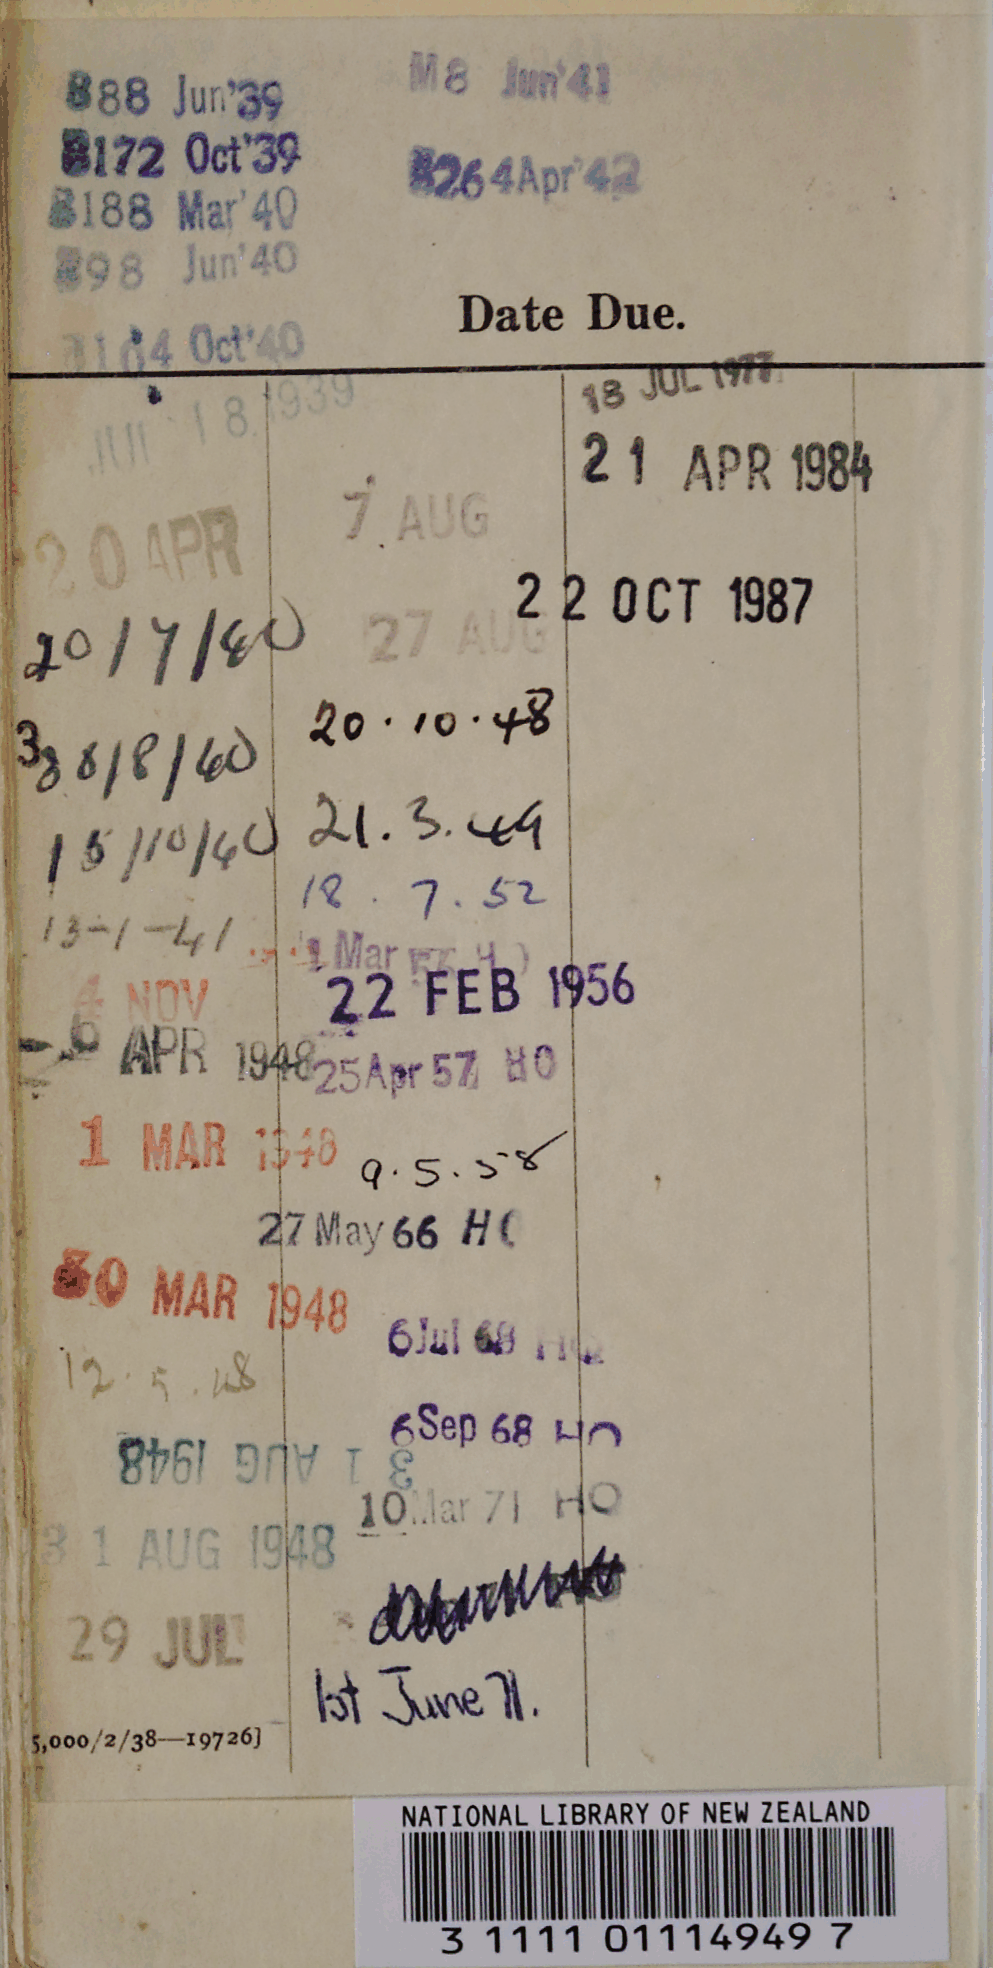 B88 Jun'39
B172 Oct'39
B188 Mar'40
B98 Jun'40
B164 Oct'40
M8 Jun'41
B264 Apr'42
Date Due.
JUL 18 1939
20 APR
20/7/40
30/8/40
15/10/40
13-1-41
4 NOV
APR 1948
1 MAR 1948
30 MAR 1948
12.5.48
31 AUG 1948
31 AUG 1948
29 JUL
5,000/2/38—19726]
7 AUG
27 AUG
20.10.48
21.3.49
18.7.52
1 Mar
22 FEB 1956
25 Apr 57 HO
9.5.58
27 May 66 HO
6 Jul 68 HO
6 Sep 68 HO
10 Mar 71 HO
1st June 71.
18 JUL 1977
21 APR 1984
22 OCT 1987
NATIONAL LIBRARY OF NEW ZEALAND
3 1111 01114949 7